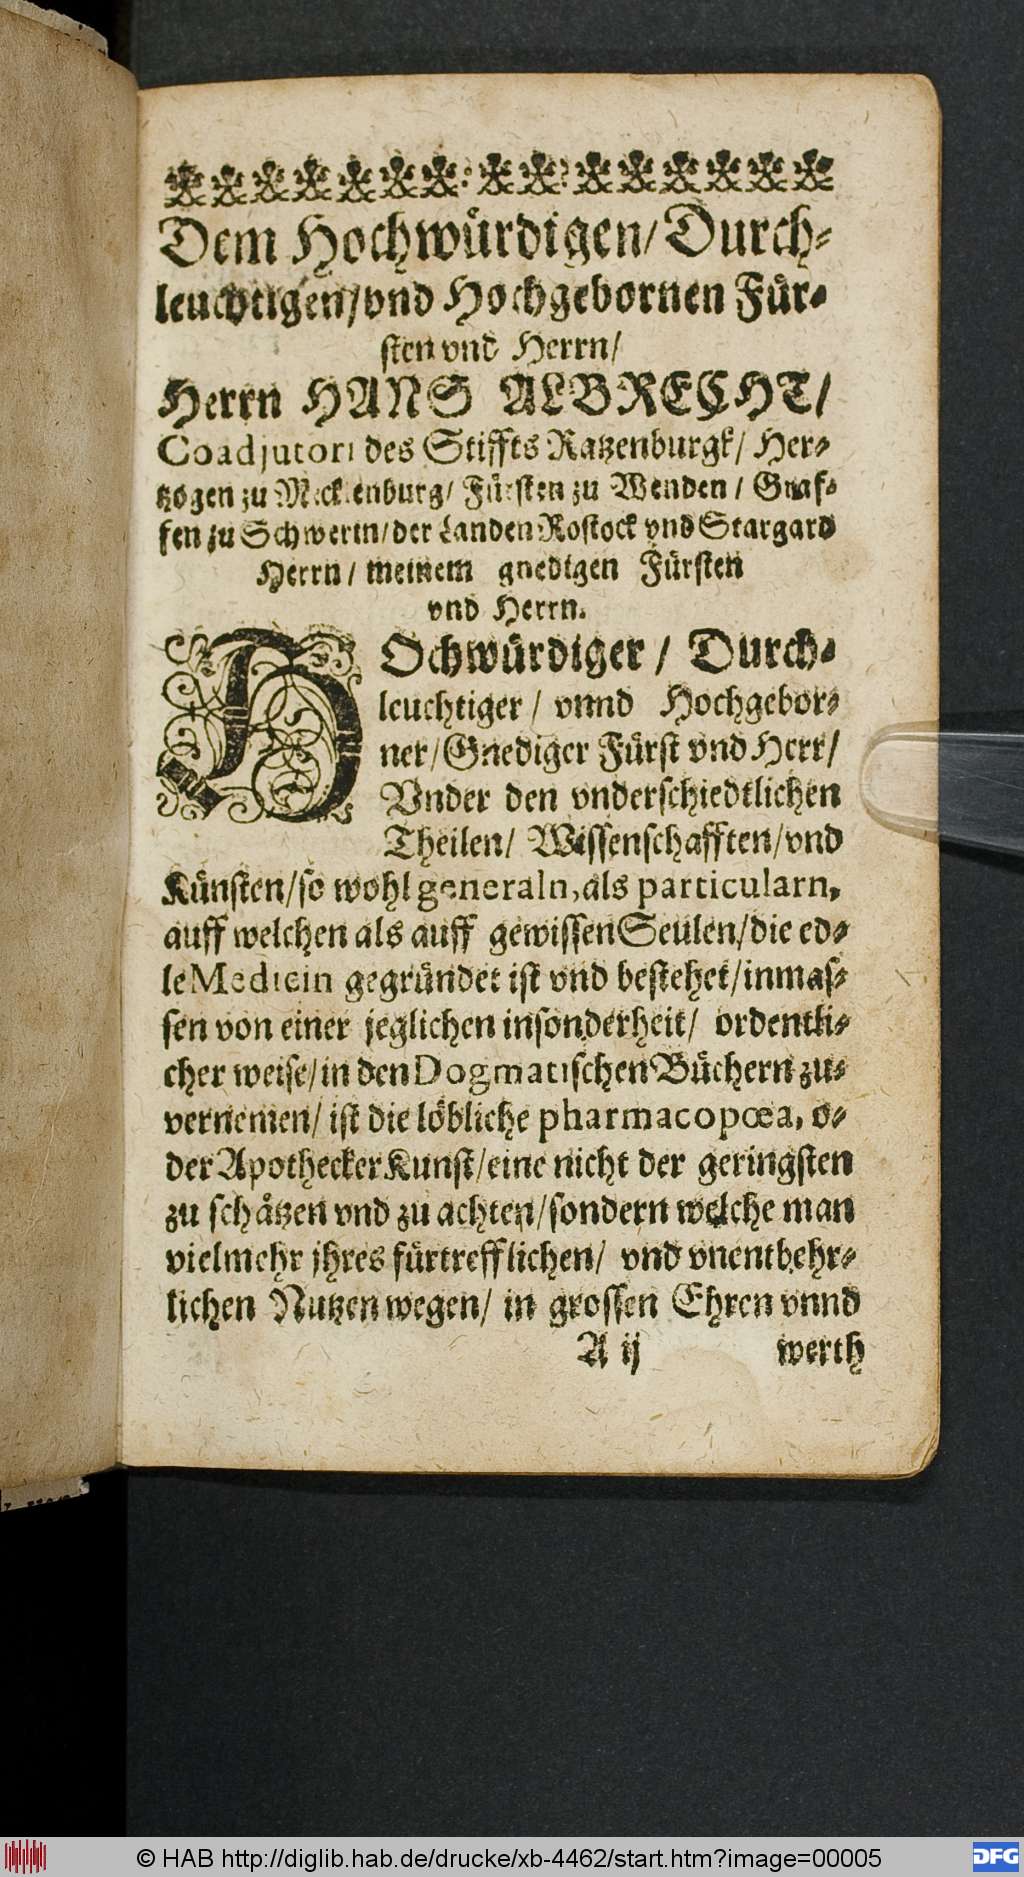 Dem Hochwürdigen/ Durch-
leuchtigen/vnd Hochgebornen Für-
sten vnd Herrn/
Herrn HANS ALBRECHT/
Coadjutori des Stiffts Ratzenburgk/ Her-
tzogen zu Mecklenburg/ Fürsten zu Wenden / Graf-
fen zu Schwerin/der Landen Rostock vnd Stargard
Herrn / meinem gnedigen Fürsten
vnd Herrn.
HOchwürdiger / Durch-
leuchtiger / vnnd Hochgebor-
ner/Gnediger Fürst vnd Herr/
Vnder den vnderschiedtlichen
Theilen/ Wissenschafften/vnd
Künsten/so wohl generaln, als particularn,
auff welchen als auff gewissen Seulen/die ed-
le Medicin gegründet ist vnd bestehet/inmas-
sen von einer jeglichen insonderheit/ ordentli-
cher weise/in den Dogmatischen Büchern zu-
vernemen/ ist die löbliche pharmacopœa, o-
der Apothecker Kunst/eine nicht der geringsten
zu schätzen vnd zu achten/sondern welche man
vielmehr jhres fürtrefflichen/ vnd vnentbehr-
lichen Nutzen wegen/ in grossen Ehren vnnd
A ij werth
© HAB http://diglib.hab.de/drucke/xb-4462/start.htm?image=00005
DFG